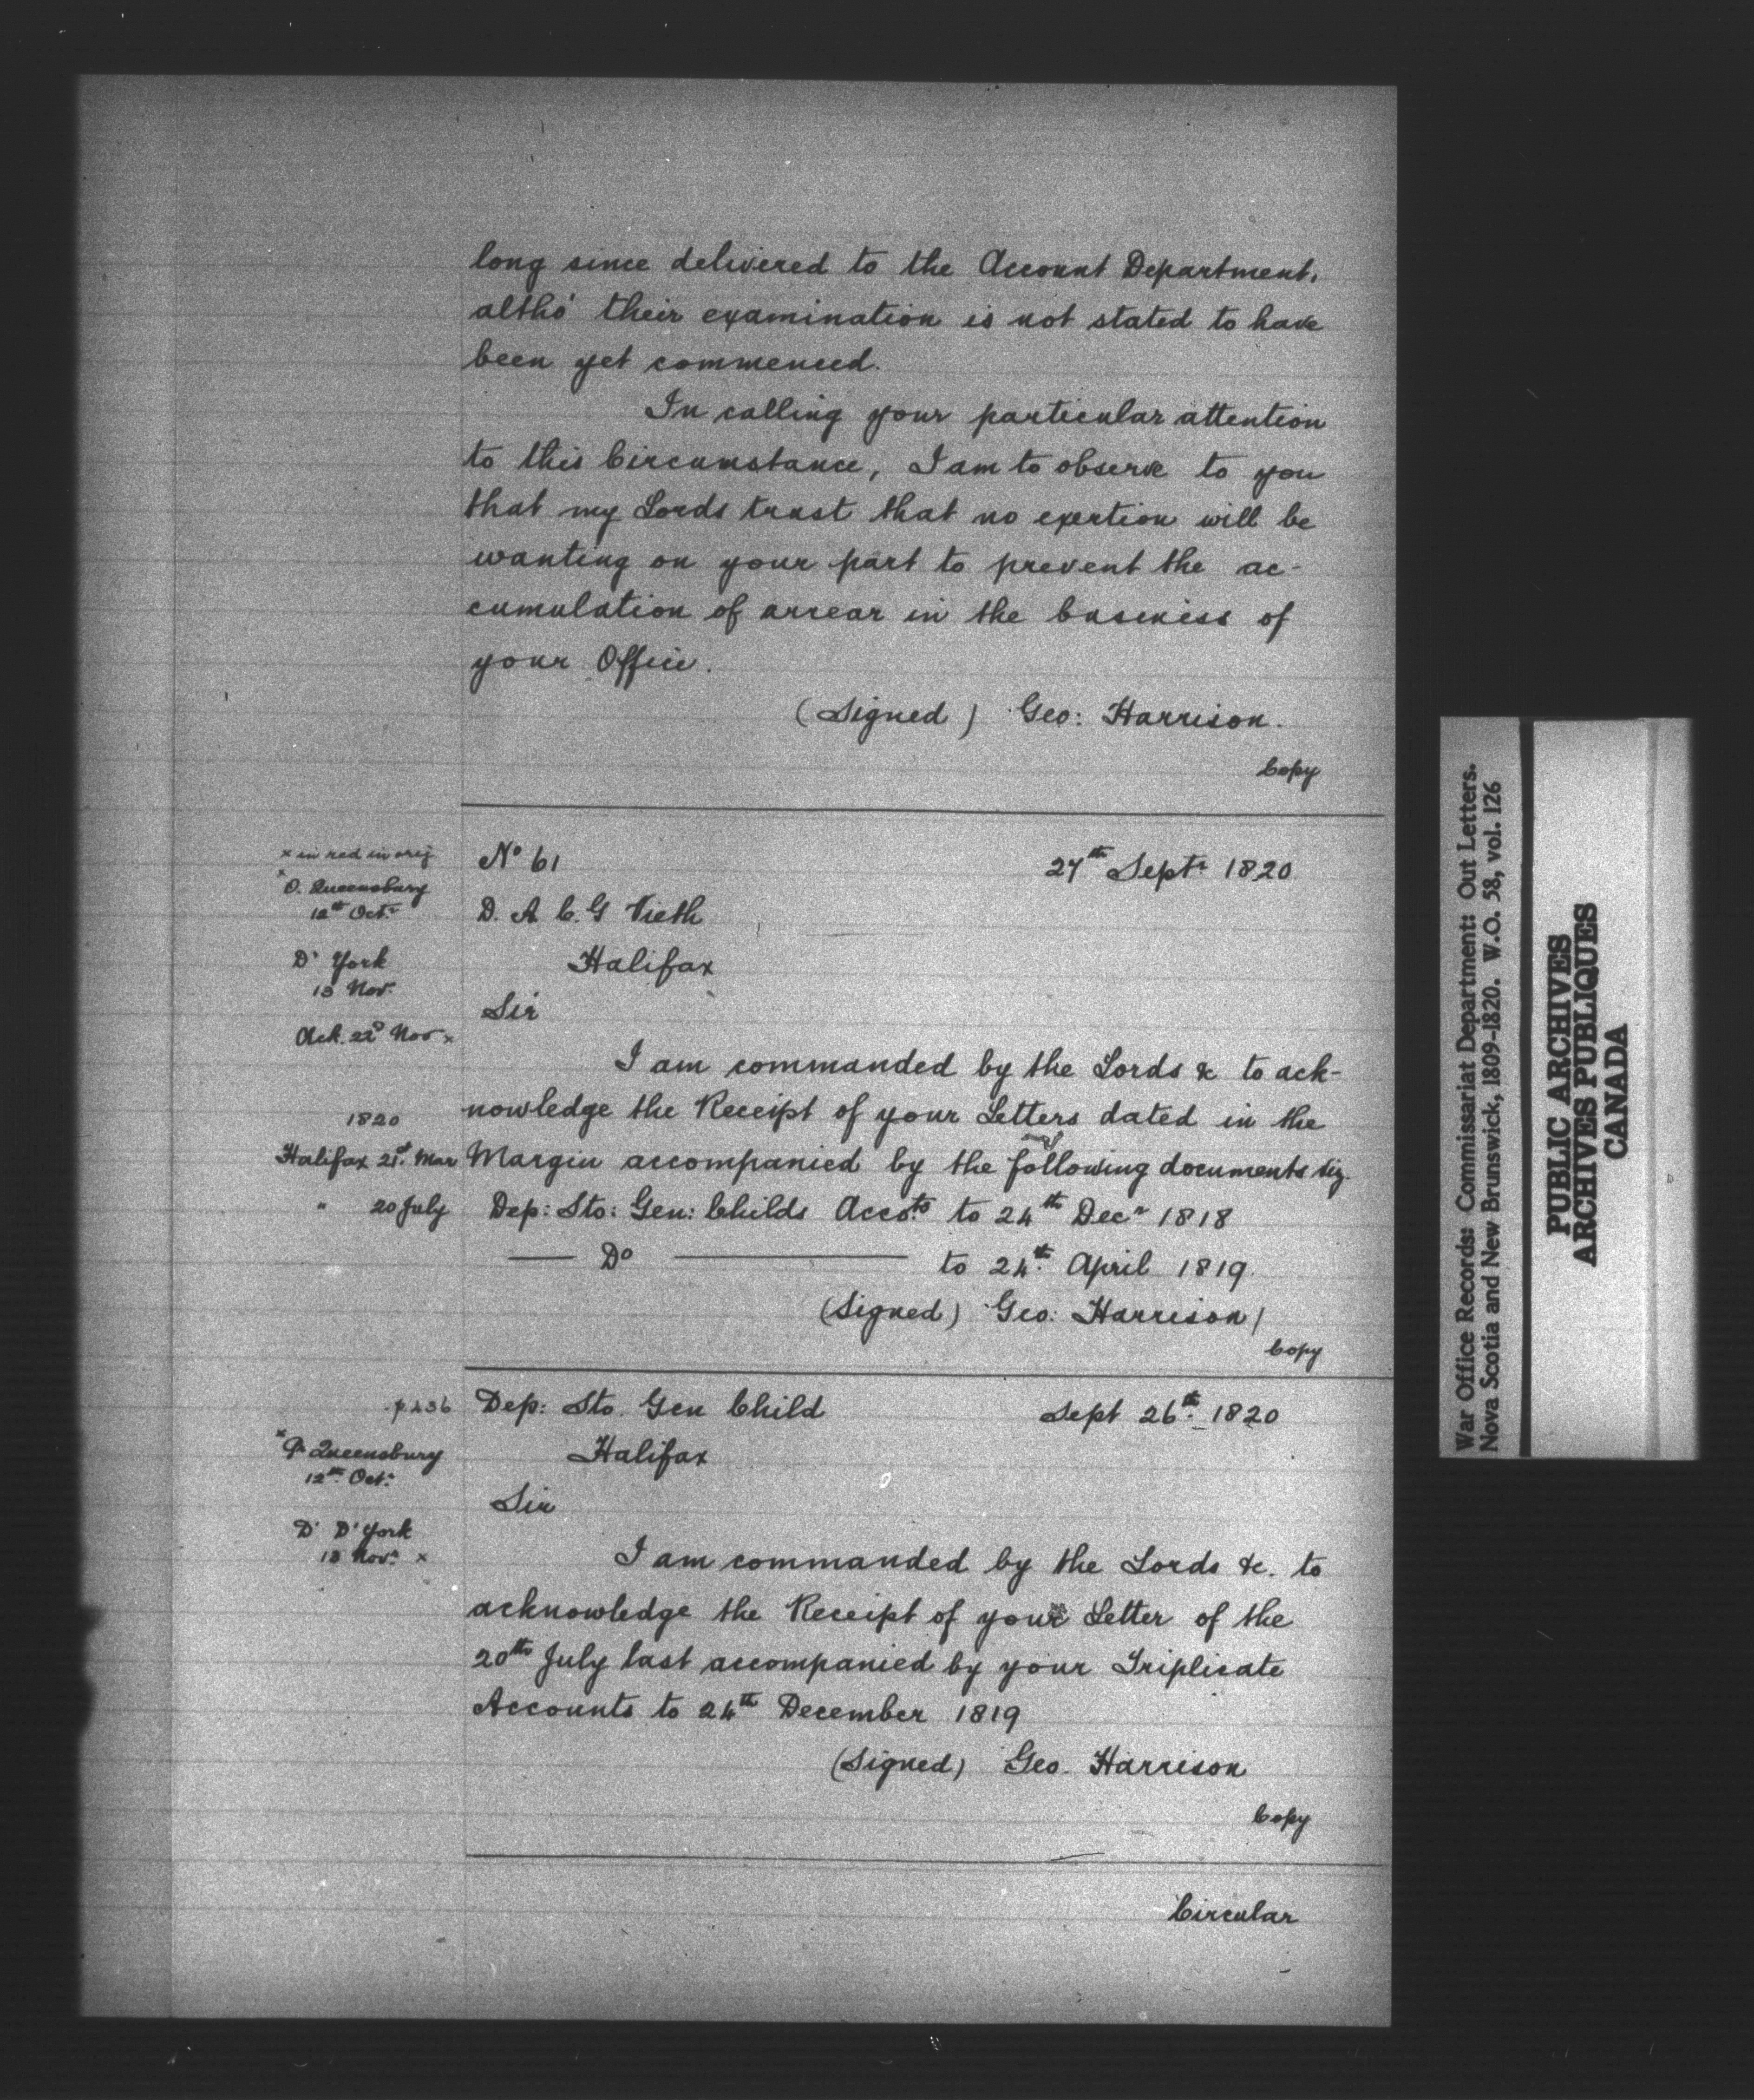 long since delivered to the Account Department,
altho' their examination is not stated to have
been yet commenced.
In calling your particular attention
to this Circumstance, I am to observe to you
that my Lords trust that no exertion will be
wanting on your part to prevent the ac-
cumulation of arrear in the business of
your Office.
(Signed) Geo: Harrison.
Copy
x in red in orig
x O. Queensbury
12th Octr
D. York
13 Nov.
Ack. 22d Nov x
No 61
27th Septr 1820
D. A C. G Vieth
Halifax
Sir
I am commanded by the Lords &c to ack-
nowledge the Receipt of your Letters dated in the
1820
Halifax 21st Mar
Margin accompanied by the following documents viz.
" 20 July
Dep: Sto: Gen: Childs Accots to 24th Decr 1818
— Do — to 24th April 1819.
(Signed) Geo: Harrison/
Copy
Dep: Sto. Gen Child
Sept 26th 1820
x P. Queensbury
12th Oct.
Halifax
Sir
D. D. York
13 Nov. x
I am commanded by the Lords &c. to
acknowledge the Receipt of your Letter of the
20th July last accompanied by your Triplicate
Accounts to 24th December 1819
(Signed) Geo. Harrison
Copy
Circular
War Office Records: Commissariat Department: Out Letters.
Nova Scotia and New Brunswick, 1809-1820. W.O. 58, vol. 126
PUBLIC ARCHIVES
ARCHIVES PUBLIQUES
CANADA